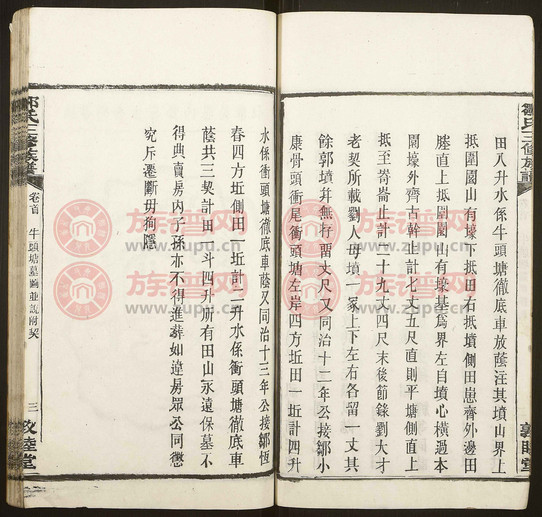 鄒氏三修族譜
田八升水係牛頭塘徹底車放蔭注其墳山界上
抵圍園山有壕下抵田右抵墳側田崽齊外邊田
塍直上抵圍園山有壕基為界左自墳心橫過本
開壕外齊古幹止計七丈五尺直則平塘側直上
抵至崙止計二十九丈四尺末後節錄劉大才
老契所載劉人母墳一冢上下左右各留一丈其
餘郭墳幷無行留丈尺又同治十二年公接鄒小
康骨頭衝尾衝頭塘左岸四方坵田一坵計四升
水係衝頭塘徹底車蔭又同治十三年公接鄒恆
春四方坵側田一坵計二升水係衝頭塘徹底車
蔭共三契計田一斗四升所有田山永遠保墓不
得典賣房內子孫亦不得進葬如違房眾公同懲
究斥遷斷毋徇隱
鄒氏三修族譜
卷首
牛頭塘墓圖並說附契
三
敦睦堂
族譜网
www.zupu.cn